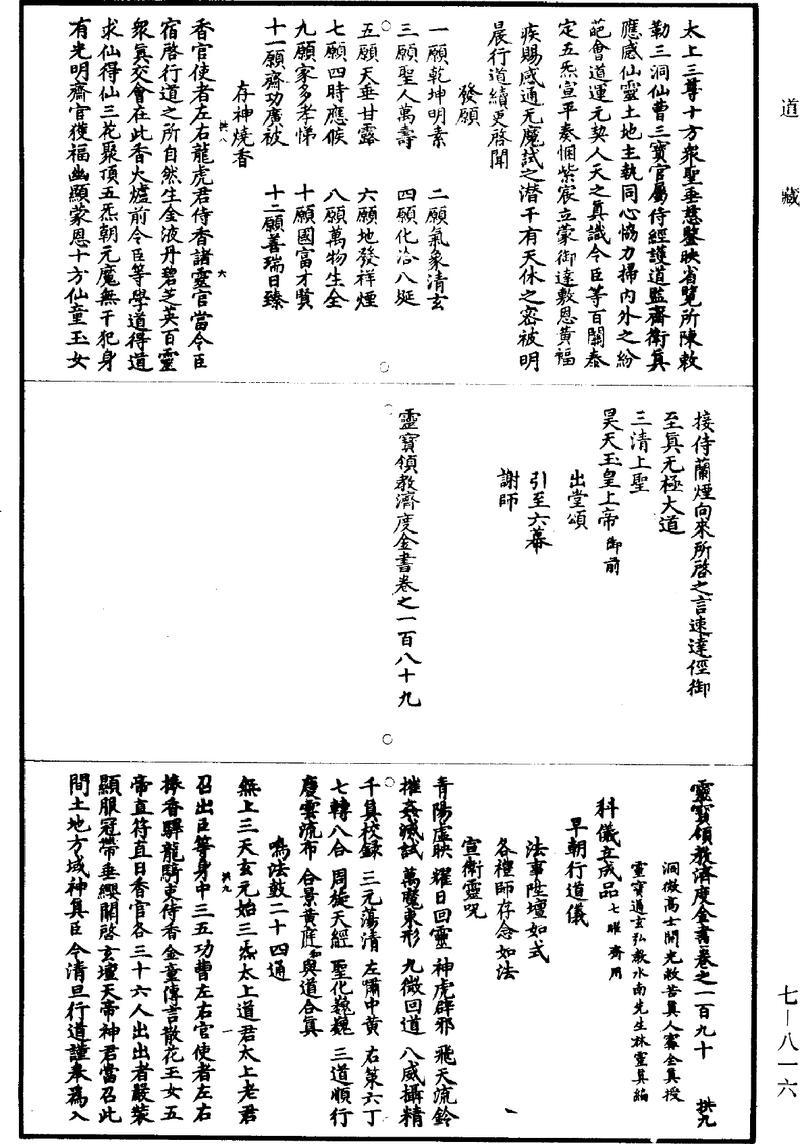 道藏
太上三尊十方衆聖垂慈鑒映省覽所陳敕
勒三洞仙曹三寶官屬侍經護道監齋衛真
應感仙靈土地主執同心恊力掃內外之紛
葩會道運元契人天之真識令臣等百關泰
定五炁宣平奏悃紫宸立蒙御達敷恩黃福
疾賜感通无魔試之潛干有天休之密被明
晨行道續更啓聞
發願
一願乾坤明素 二願氣象清玄
三願聖人萬壽 四願化洽八埏
五願天垂甘露 六願地發祥煙
七願四時應候 八願萬物生全
九願家多孝悌 十願國富才賢
十一願齋功廣被 十二願善瑞日臻
存神燒香
香官使者左右龍虎君侍香諸靈官當令臣
宿啓行道之所自然生金液丹碧芝英百靈
衆真交會在此香火爐前令臣等學道得道
求仙得仙三花聚頂五炁朝元魔無干犯身
有光明齋官獲福幽顯蒙恩十方仙童玉女
接侍蘭煙向來所啓之言速達徑御
至真无極大道
三清上聖
昊天玉皇上帝御前
出堂頌
引至六幕
謝師
靈寶領教濟度金書卷之一百八十九
靈寶領教濟度金書卷之一百九十 拱九
洞微高士開光救苦真人寗全真授
靈寶通玄弘教水南先生林靈真編
科儀立成品 七曜齋用
早朝行道儀
法事陞壇如式
各禮師存念如法
宣衛靈呪
青陽虛映 耀日回靈 神虎辟邪 飛天流鈴
摧姦滅試 萬魔束形 九微回道 八威攝精
千真校錄 三元蕩清 左嘯中黃 右策六丁
七轉八合 周旋天經 聖化巍巍 三道順行
慶雲流布 合景黃庭 與道合真
鳴法鼓二十四通
無上三天玄元始三炁太上道君太上老君
召出臣等身中三五功曹左右官使者左右
捧香驛龍騎吏侍香金童傳言散花玉女五
帝直符直日香官各三十六人出出者嚴裝
顯服冠帶垂纓關啓玄壇天帝神君當召此
間土地方域神真臣 今清旦行道謹奉為入
七－八一六